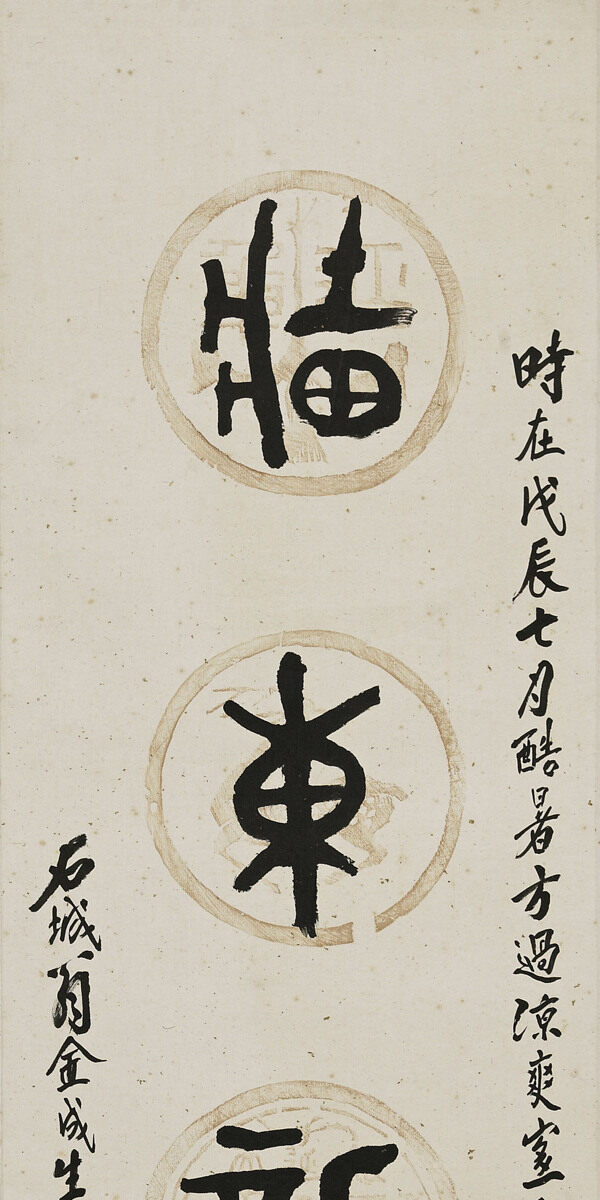 時在戊辰七月酷暑方過涼爽
牆東
石城翁金成生